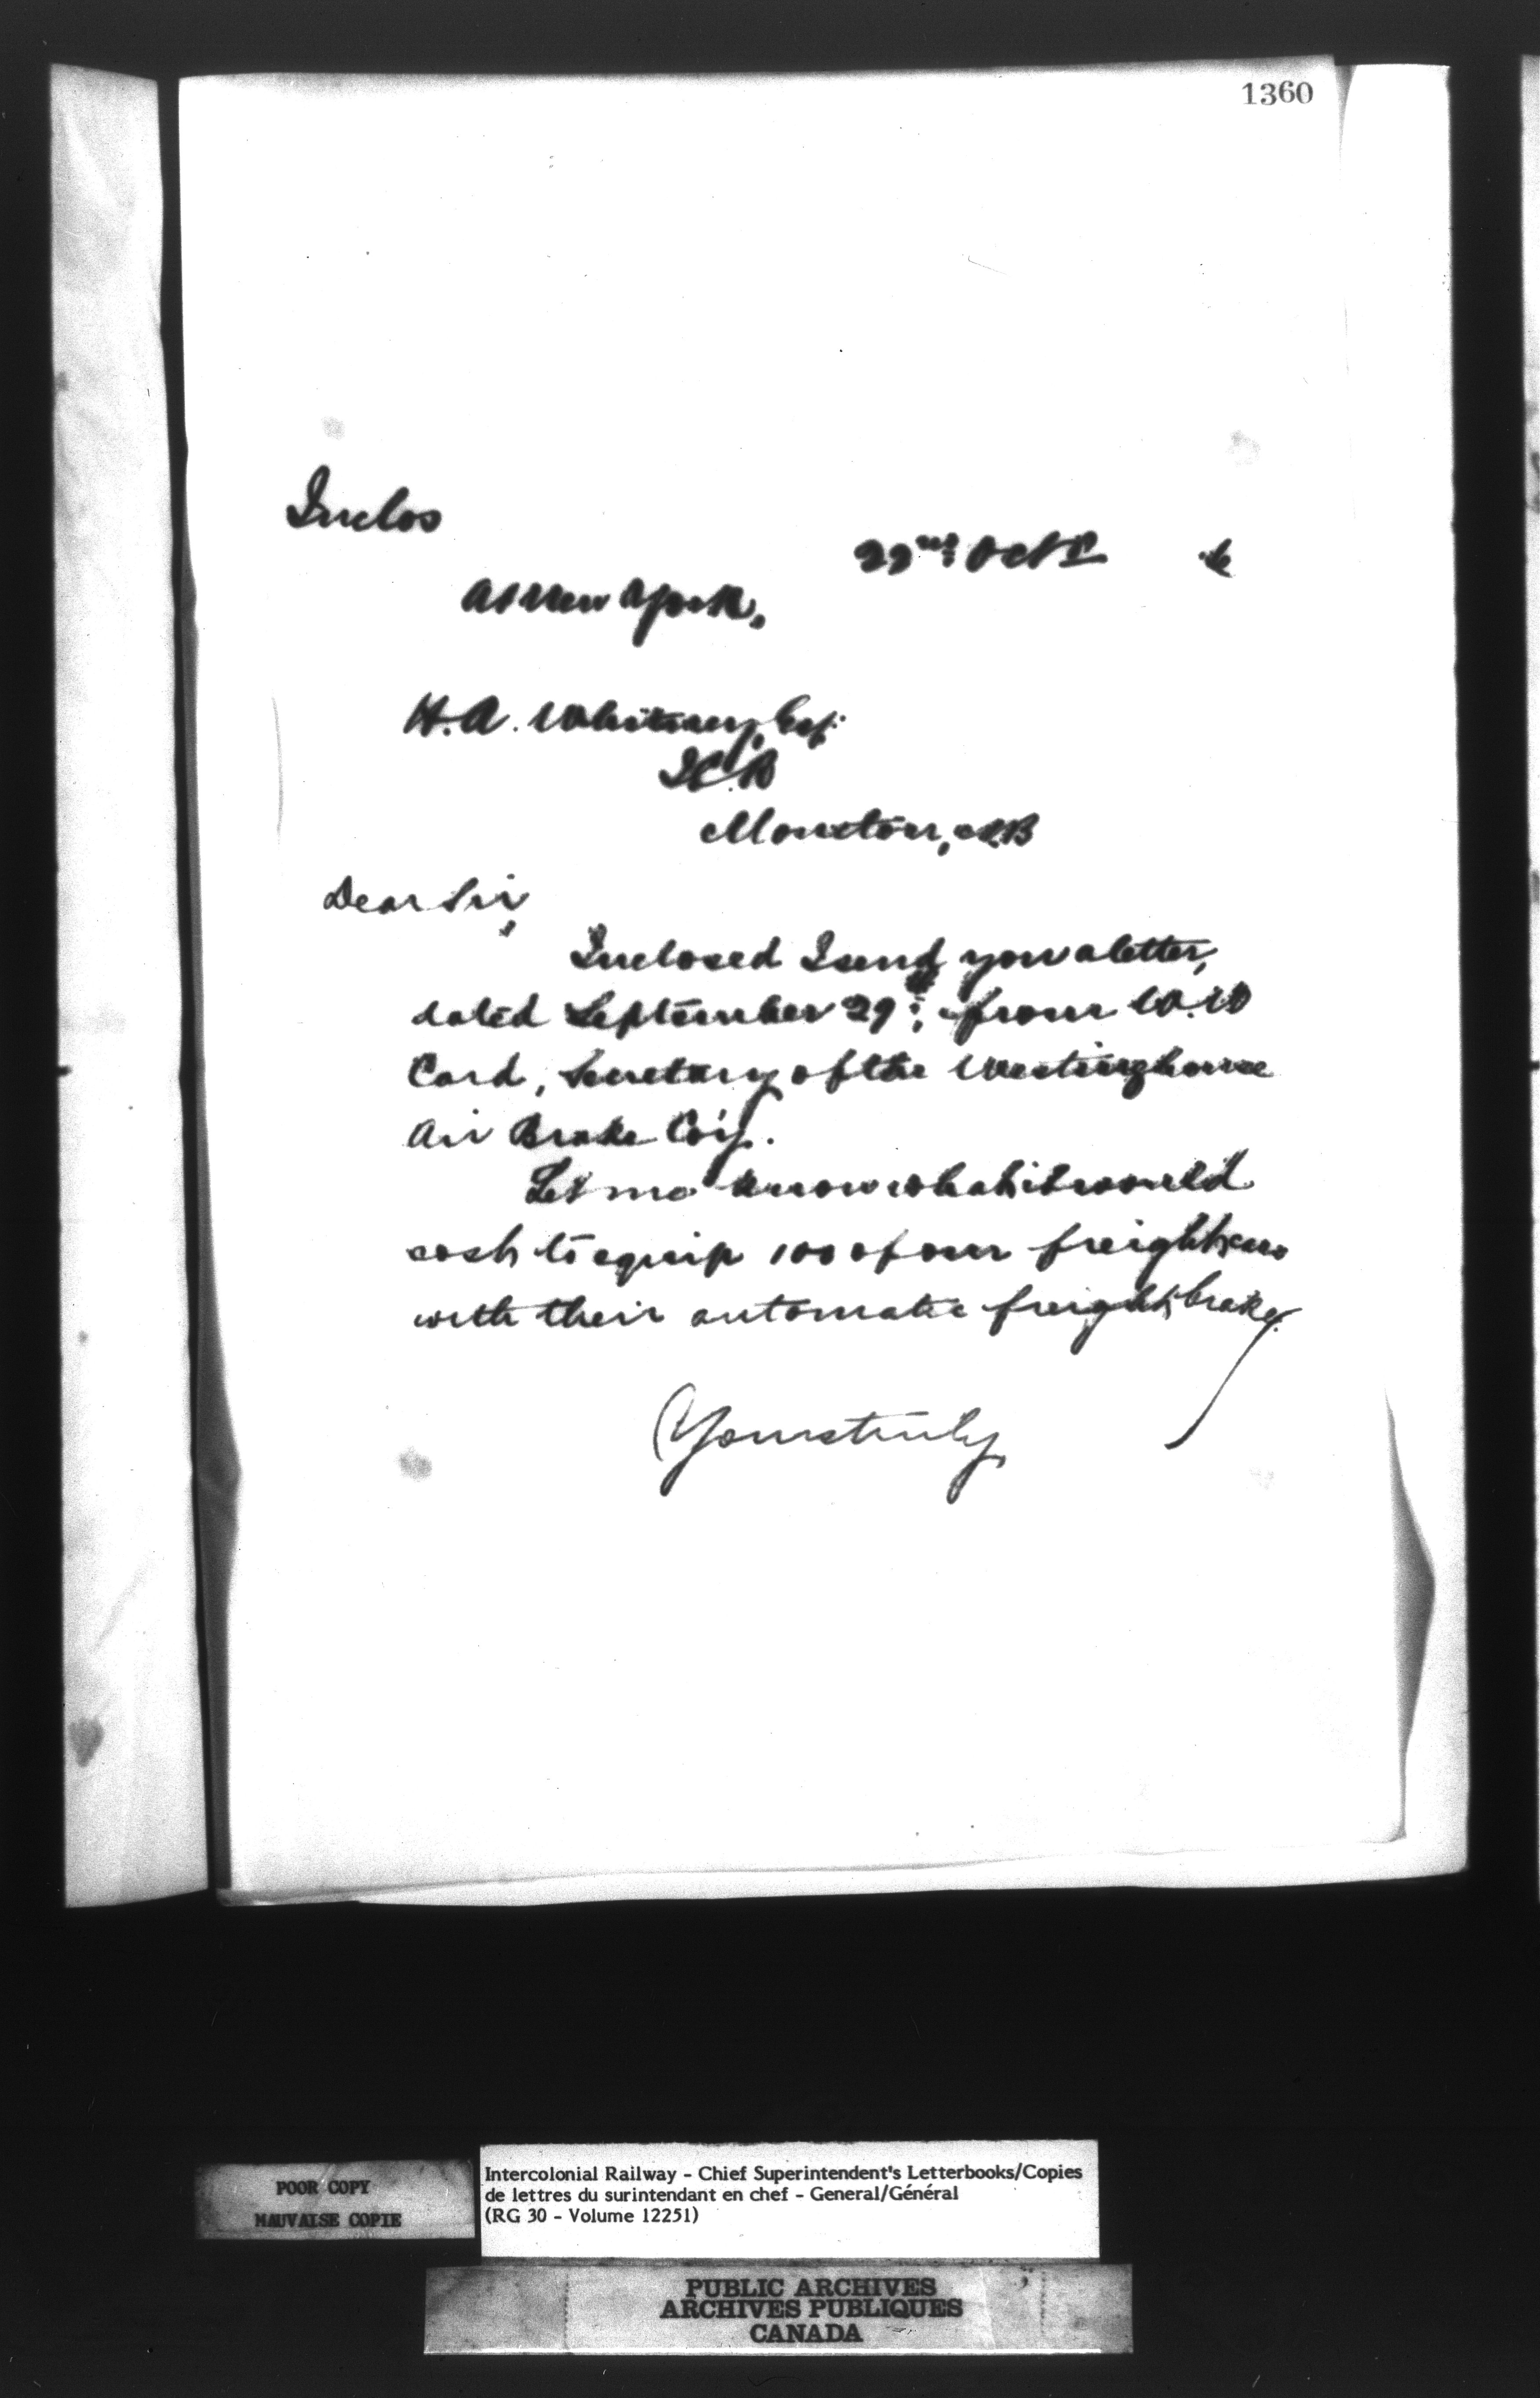 1360
Inclos
22nd Octr 6
At New York,
H.A. Whitney, Esq.
I.C.R
Moncton, N.B
Dear Sir,
Inclosed I send you a letter,
dated September 29th, from W.W
Card, Secretary of the Westinghouse
Air Brake Co'y.
Let me know what it would
cost to equip 100 of our freight cars
with their automatic freight brake.
Yours truly
POOR COPY
MAUVAISE COPIE
Intercolonial Railway - Chief Superintendent's Letterbooks/Copies
de lettres du surintendant en chef - General/Général
(RG 30 - Volume 12251)
PUBLIC ARCHIVES
ARCHIVES PUBLIQUES
CANADA